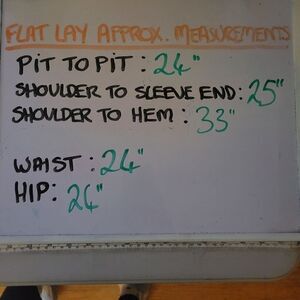 FLAT LAY APPROX. MEASUREMENTS
PiT TO PiT : 24"
SHOULDER TO SLEEVE END: 25"
SHOULDER TO HEM : 33"
WAIST : 24"
HIP: 24"